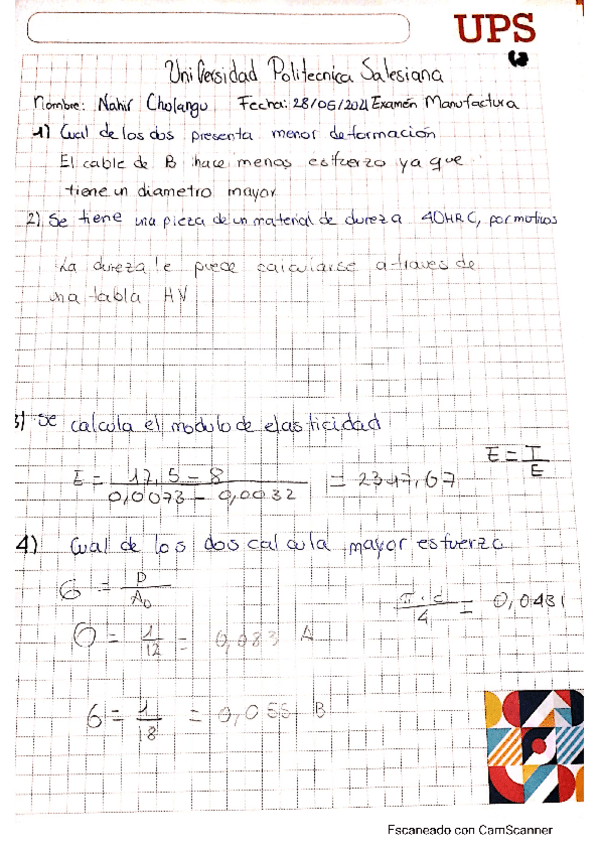 UPS
Universidad Politecnica Salesiana
Nombre: Nahir Cholango Fecha: 28/06/2021 Examén Manufactura
1) Cual de los dos presenta menor deformación
El cable de B hace menos esfuerzo ya que
tiene un diametro mayor
2) Se tiene una pieza de un material de dureza 40HRC, por motivos
La dureza le puede calcularse a traves de
una tabla HV
3) Se calcula el modulo de elasticidad
E = 17,5 - 8 / 0,0073 - 0,0032 = 2347,67
E = I / E
4) Cual de los dos calcula mayor esfuerzo
6 = P / A0
π . d / 4 = 0,0431
σ = 1 / 12 = 0,083 A
6 = 1 / 18 = 0,055 B
Escaneado con CamScanner